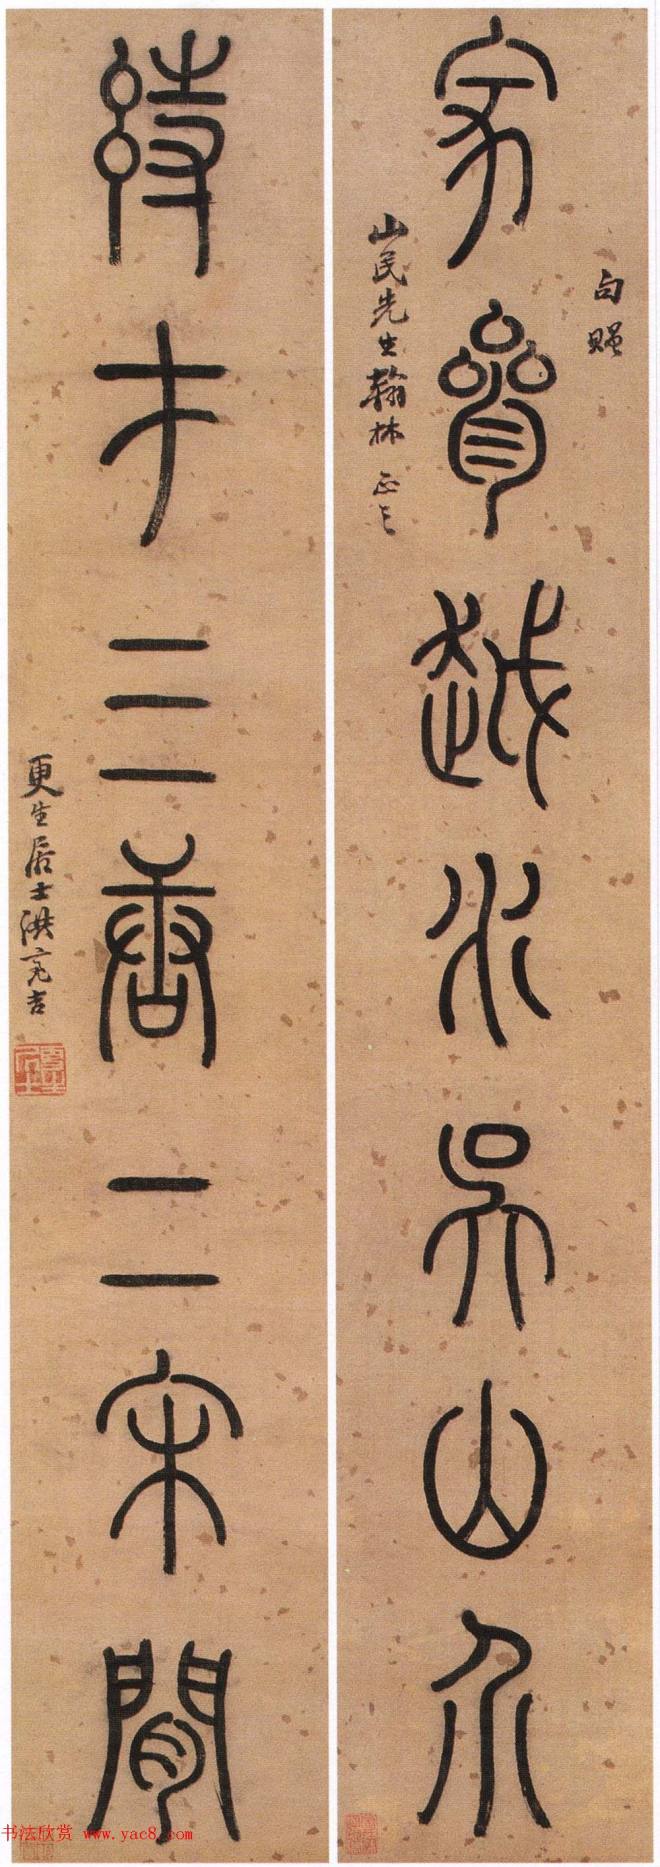 句贈
家參越水吳山介
山民先生翰林 正之
才三唐二宋間
更生居士洪亮吉
书法欣赏 www.yac8.com